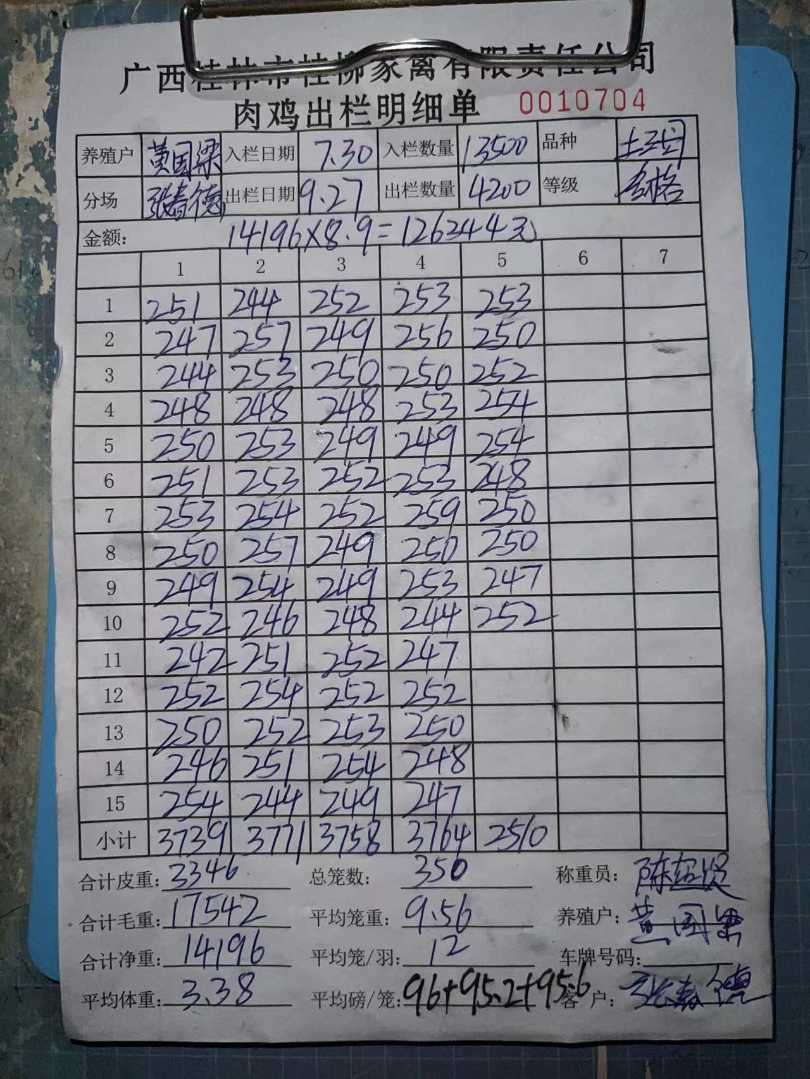 广西桂林市桂柳家禽有限责任公司
肉鸡出栏明细单 0010704
养殖户 黄国梁 入栏日期 7.30 入栏数量 13500 品种 土三
分场 张春德 出栏日期 9.27 出栏数量 4200 等级 合格
金额: 14196×8.9=126344元
1 2 3 4 5 6 7
1 251 244 252 253 253
2 247 257 249 256 250
3 244 253 250 250 252
4 248 248 248 253 254
5 250 253 249 249 254
6 251 253 252 253 248
7 253 254 252 259 250
8 250 257 249 250 250
9 249 254 249 253 247
10 252 246 248 244 252
11 242 251 252 247
12 252 254 252 252
13 250 252 253 250
14 246 251 254 248
15 254 244 249 247
小计 3739 3771 3758 3764 2510
合计皮重: 3346 总笼数: 350 称重员: 陈超贤
合计毛重: 17542 平均笼重: 9.56 养殖户: 黄国梁
合计净重: 14196 平均笼/羽: 12 车牌号码:
平均体重: 3.38 平均磅/笼: 96+95.2+95.6 客户: 张春德